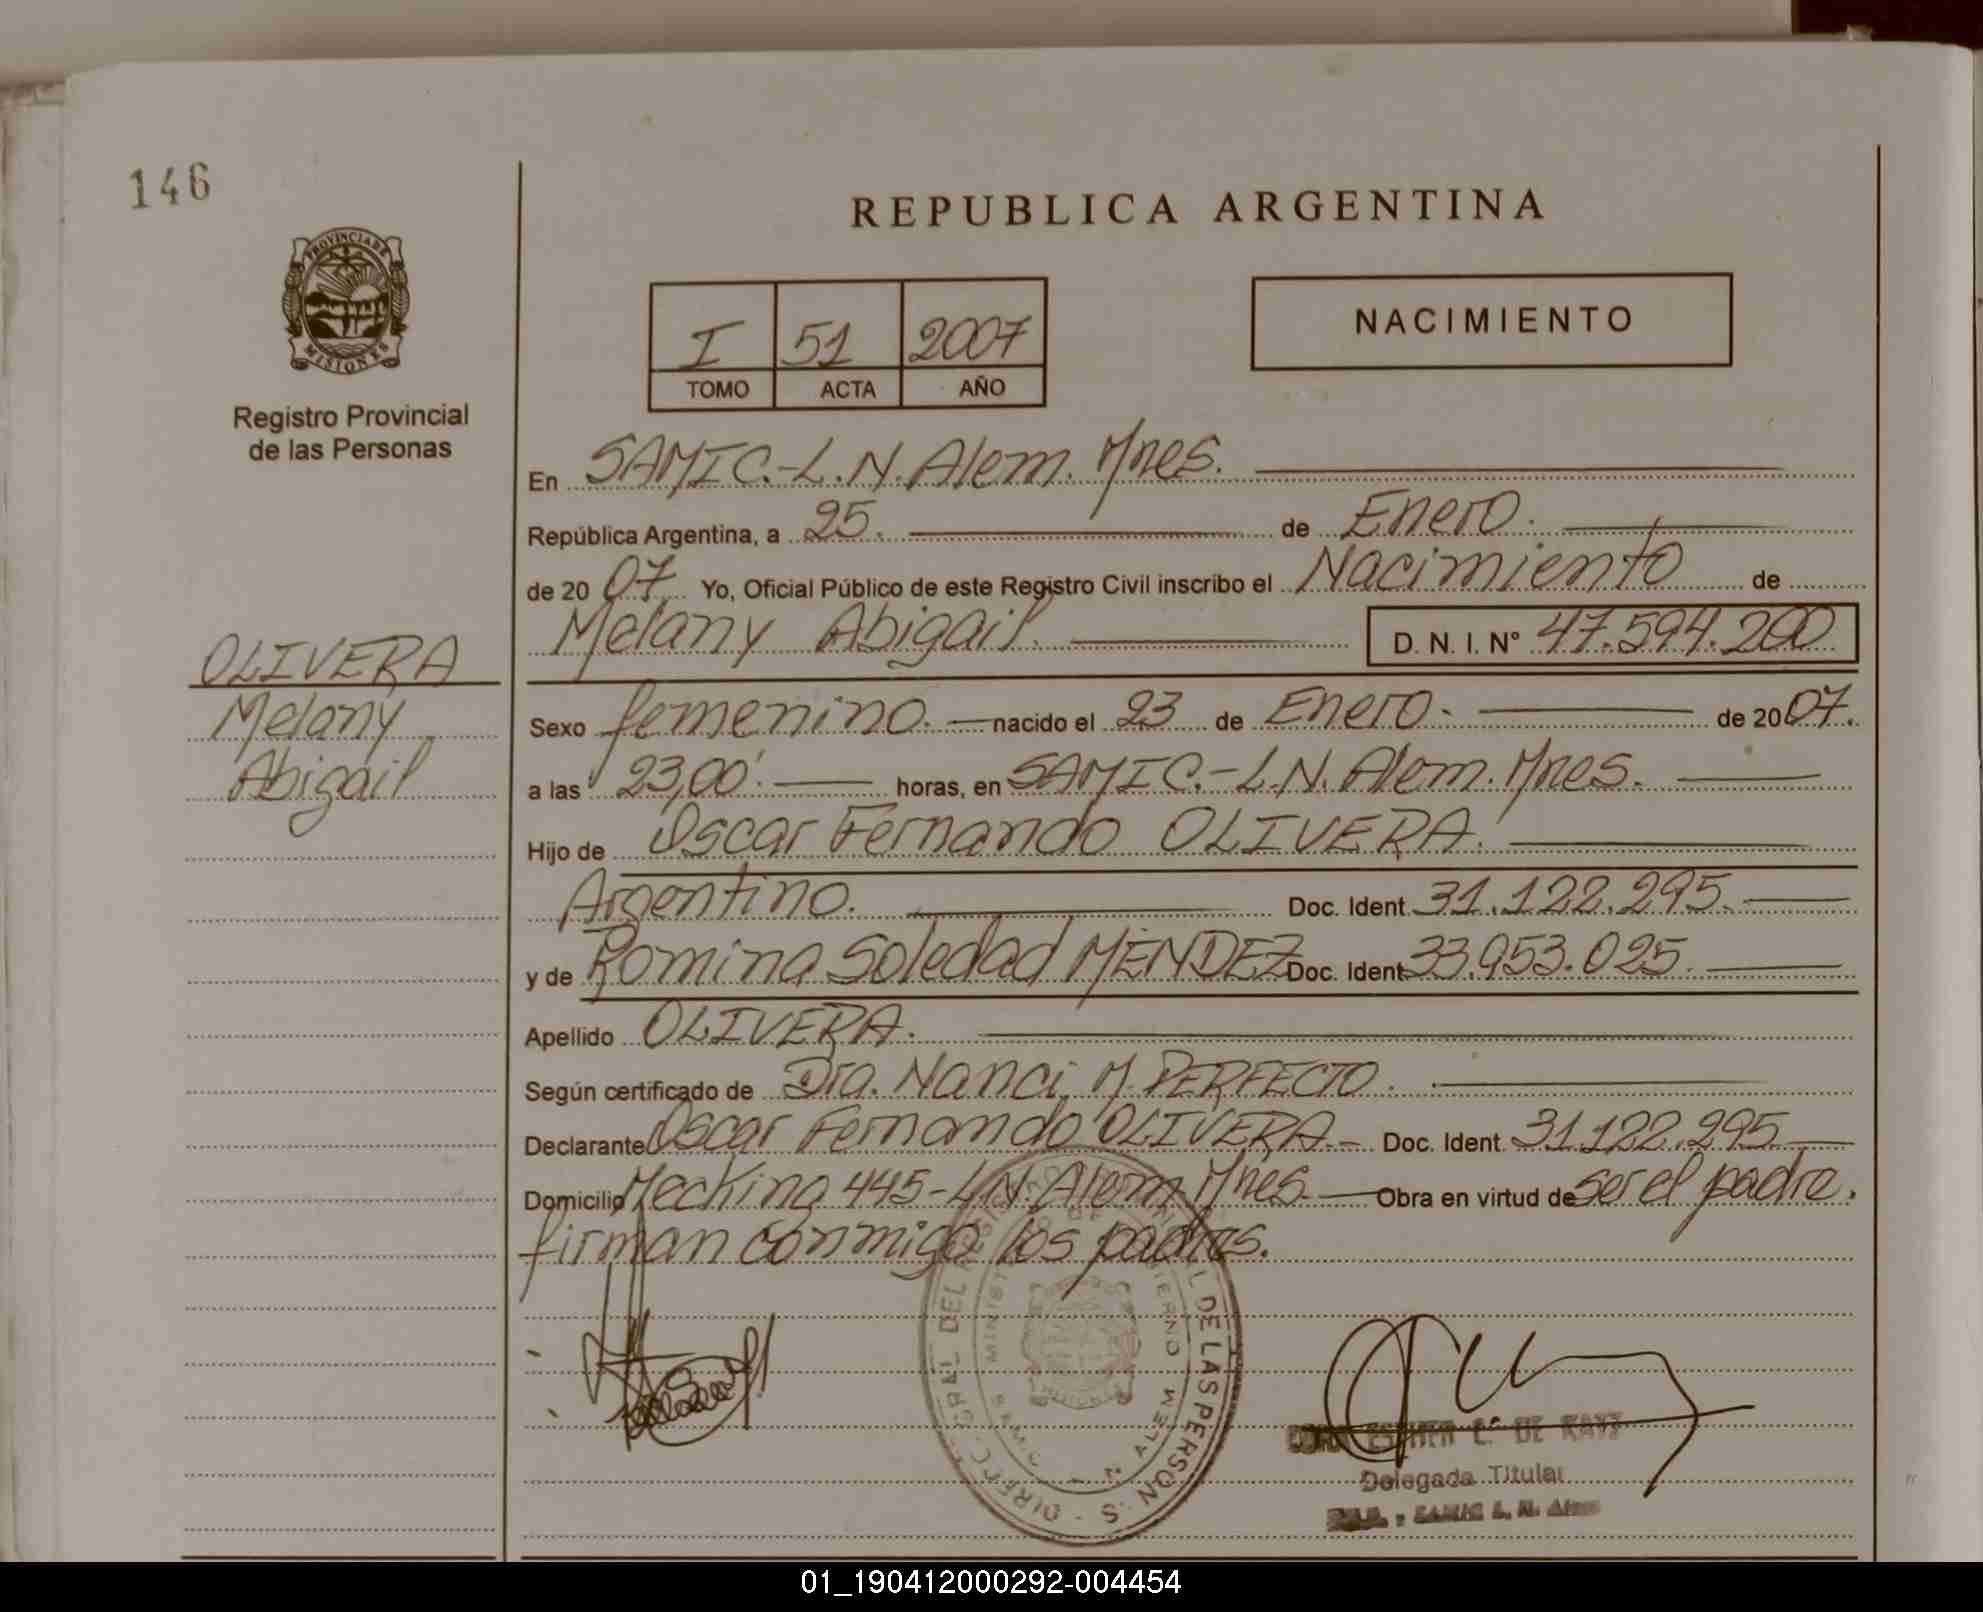 146
REPUBLICA ARGENTINA
PROVINCIA DE
MISIONES
Registro Provincial
de las Personas
I 51 2007
TOMO ACTA AÑO
NACIMIENTO
En SAMIC.-L.N.Alem. Mnes.
República Argentina, a 25. de Enero.
de 20 07 Yo, Oficial Público de este Registro Civil inscribo el Nacimiento de
Melany Abigail. D. N. I. N° 47.594.200
OLIVERA
Melany
Abigail
Sexo femenino. nacido el 23 de Enero. de 2007.
a las 23,00'. horas, en SAMIC.-L.N. Alem. Mnes.
Hijo de Oscar Fernando OLIVERA.
Argentino. Doc. Ident. 31.122.295.
y de Romina Soledad MENDEZ Doc. Ident. 33.953.025.
Apellido OLIVERA.
Según certificado de Dra. Nanci M. PERFECTO.
Declarante Oscar Fernando OLIVERA.- Doc. Ident. 31.122.295
Domicilio Mecking 445-L.N. Alem Mnes. Obra en virtud de ser el padre.
firman conmigo los padres.
DE LAS PERSONAS
ESTHER DE
Delegada Titular
SAMIC L. N. Alem
01_190412000292-004454